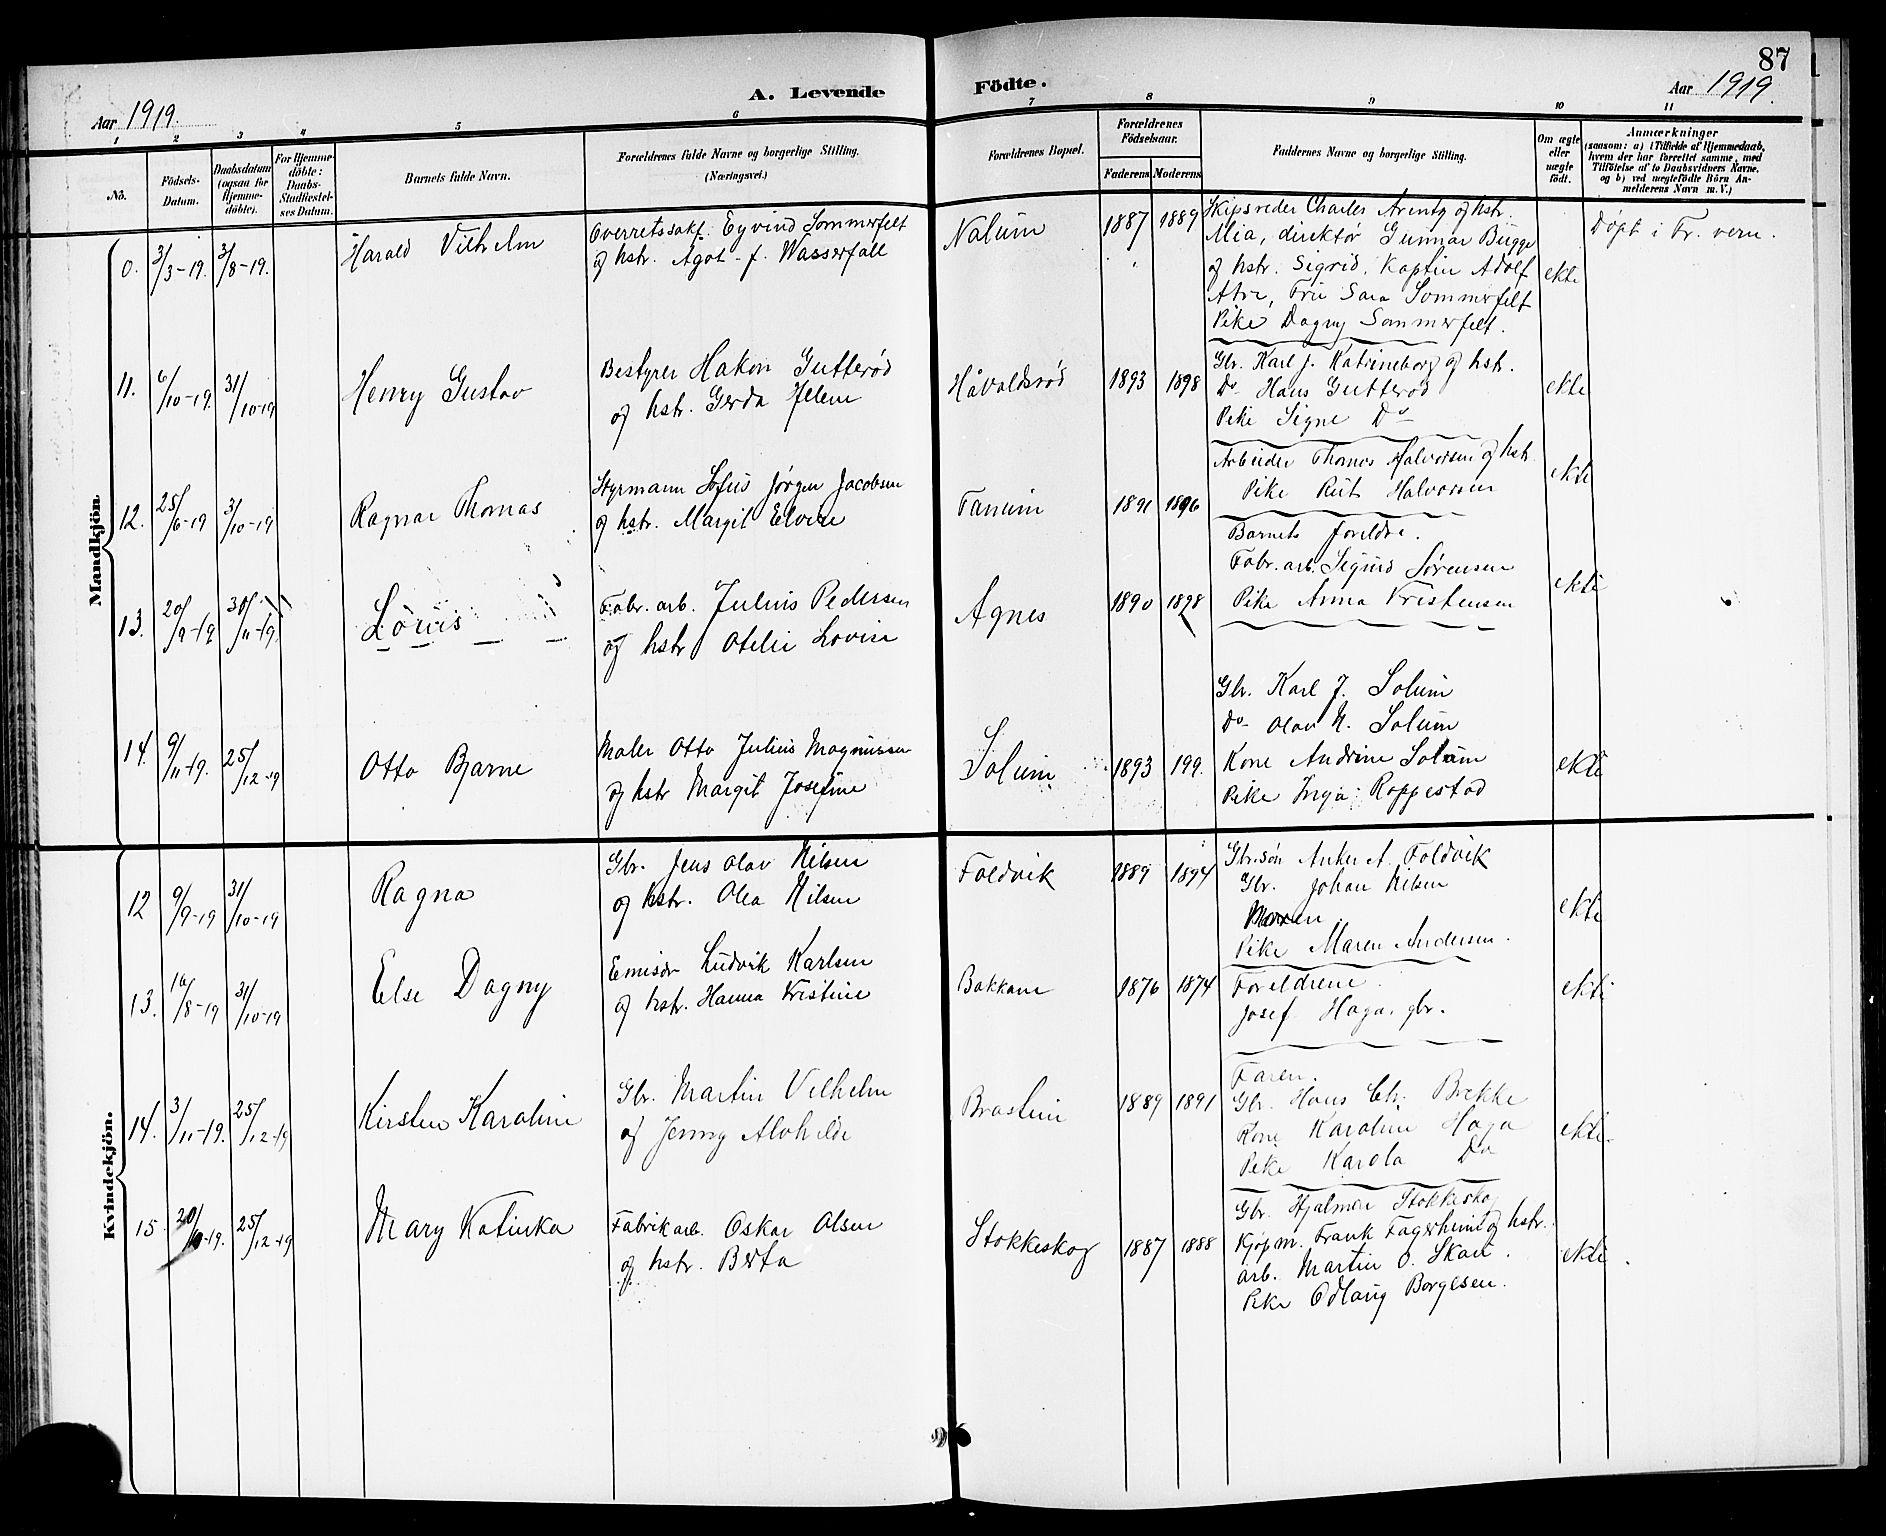 87
A. Levende Födte.
Aar 1919. Aar 1919.
1 2 3 4 5 6 7 8 9 10 11
No.
Födsels-Datum.
Daabsdatum (ogsaa for Hjemme-döbte).
For Hjemme-döbte: Daabs-Stadfæstelses Datum.
Barnets fulde Navn.
Forældrenes fulde Navne og borgerlige Stilling. (Næringsvei.)
Forældrenes Bopæl.
Forældrenes Födselsaar.
Faderens. Moderens.
Faddernes Navne og borgerlige Stilling.
Om ægte eller uægte födt.
Anmærkninger
(saasom: a) i Tilfælde af Hjemmedaab, hvem der har forrettet samme, med Tilföielse af to Daabsvidners Navne, og b) ved uægtefödte Börn Anmelderens Navn m. V.)
Mandkjön.
0. 3/3-19. 3/8-19. Harald Vilhelm
Overretssakf. Eyvind Sommerfelt
og hstr. Agot f. Wasserfall
Nalum 1887 1889
Skipsreder Charles Arentz og hstr.
Mia, direktør Gunnar Bugge
og hstr. Sigrid, Kaptin Adolf
Fru Sara Sommerfelt
Pike Dagny Sommerfelt.
ekte
Døpt i Fr. vern.
11. 6/10-19. 31/10-19 Henry Gustav
Bestyrer Hakon Gutterød
og hstr. Gerda Helene
Håvaldsrød 1893 1898
Gbr. Karl J. Katrineborg og hstr.
Do Hans Gutterød
Pike Signe Do
ekte
12. 25/6-19 3/10-19 Ragnar Thomas
Styrmann Sofus Jørgen Jacobsen
og hstr. Margit Elvire
Fanum 1891 1896
Arbeider Thomas Halvorsen og hstr
Pike Rut Halvorsen
ekte
13. 20/9-19 30/11-19 Louis
Fabr. arb. Julius Pedersen
og hstr Otelie Lovise
Agnes 1890 1898
Barnets foreldre.
Fabr. arb. Sigurd Sørensen
Pike Anna Kristensen
ekte
14. 9/11-19. 25/12-19 Otto Bjarne
Maler Otto Julius Magnussen
og hstr Margit Josefine
Solum 1893 199.
Gbr. Karl J. Solum
Do Olav N. Solum
Kone Andrine Solum
Pike Inga Roppestad
ekte
Kvindekjön.
12 9/9-19 31/10-19 Ragna
Gbr. Jens Olav Nilsen
og hstr. Olea Nilsen
Foldvik 1889 1894
Gbr.søn Anker A. Foldvik
Gbr. Johan Nilsen
Moren
Pike Maren Andersen.
ekte
13. 16/8-19 31/10-19 Else Dagny
Emisær Ludvik Karlsen
og hstr. Hanna Kristine
Bakkane 1876 1874
Foreldrene
Josef Haga, gbr.
ekte
14. 3/11-19. 25/12-19 Kirsten Karoline
Gbr. Martin Vilhelm
og Jenny Alvhilde
Brastein 1889 1891
Faren.
Gbr. Hans Chr. Brekke
Kone Karoline Haga
Pike Karola Do
ekte
15 20/10-19. 25/12-19 Mary Katinka
Fabrikarb. Oskar Olsen
og hstr. Berta
Stokkeskog 1887 1888
Gbr. Hjalmar Stokkeskog
Kjøpm. Frank Fagerheim og hstr.
arb. Martin O. Skau.
Pike Odlaug Borgesen.
ekte